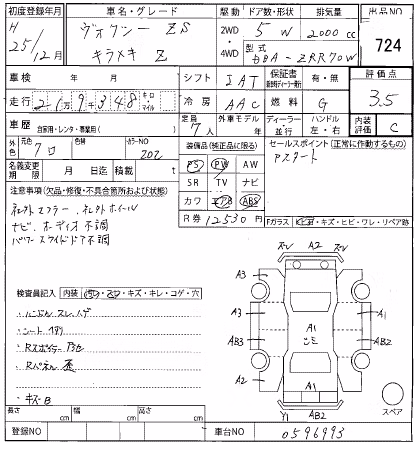 初度登録年月
車名・グレード
駆動
ドア数・形状
排気量
出品NO
H 25/12月
ヴォクシー ZS
キラメキ Z
2WD
4WD
5 W
2000 cc
型式
DBA-ZRR70W
724
車検 年 月
シフト
IAT
保証書
有・無
評価点
3.5
走行 2 1万 9千 348 キロ マイル
冷房
AAC
燃料
G
車歴 自家用・レンタ・専業用( )
定員 7人
外車モデル 年
ディーラー 並行
ハンドル 左・右
内装評価 C
外色 元色 クロ
色替
カラーNO 202
装備品(純正品に限る)
セールスポイント(正常に作動するもの)
名義変更期限 月 日迄
積載量 t
PS PW AW
SR TV ナビ
カワ エアB ABS
アスタート
注意事項(欠品・修復・不具合箇所および状態)
社外マフラー、社外ホイール
ナビ、オーディオ不調
パワースライドドア不調
R券 12530円
Fガラス
キズ・ヒビ・ワレ・リペア跡
検査員記入
内装
キズ・キレ・コゲ・穴
・シート
・Rスポイラー
・Rパネル 歪
・キズB
スレ A2 スレ
A3 A1
A1
AB3 AB2
A3
A2
Y1 AB2
スペア
長さ cm
幅 cm
高さ cm
登録NO
車台NO
0596993